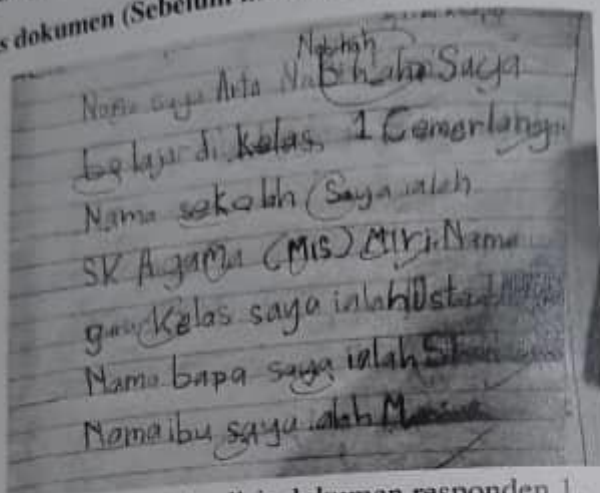 s dokumen (Sebelum
Nabihah
Nama saya Arta Saya
belajar di kelas 1 Cemerlang.
Nama sekolah Saya ialah
SK Agama (MIS) Miri. Nama
guru Kelas saya ialah Ustaz
Nama bapa saya ialah
Nama ibu saya ialah
dokumen responden 1